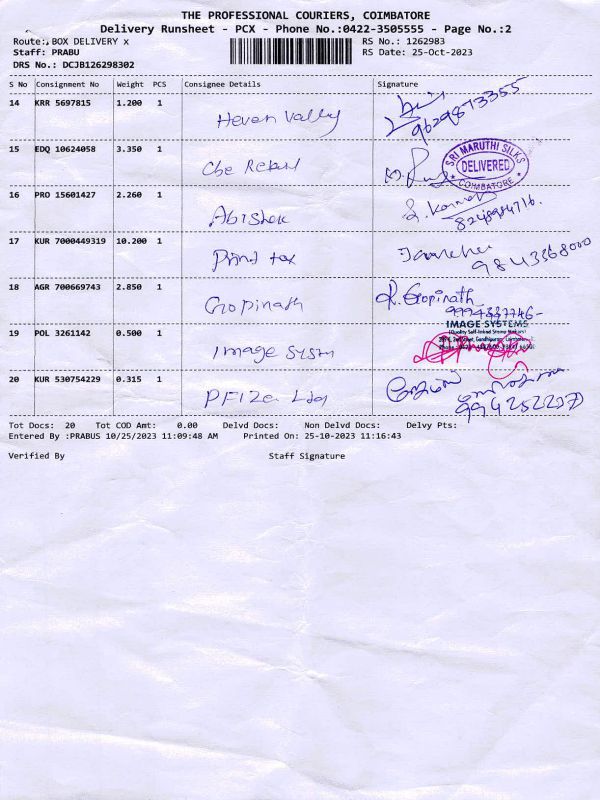 THE PROFESSIONAL COURIERS, COIMBATORE
Delivery Runsheet - PCX - Phone No.:0422-3505555 - Page No.:2
Route: BOX DELIVERY x RS No.: 1262983
Staff: PRABU RS Date: 25-Oct-2023
DRS No.: DCJB126298302
S No Consignment No Weight PCS Consignee Details Signature
14 KRR 5697815 1.200 1 Heven Valley 9629873355
15 EDQ 10624058 3.350 1 Cbe SRI MARUTHI SILKS DELIVERED COIMBATORE
16 PRO 15601427 2.260 1 Abishek
17 KUR 7000449319 10.200 1 Print tax 9843368000
18 AGR 700669743 2.850 1 Gropinath R. Gropinath
19 POL 3261142 0.500 1 Image System IMAGE SYSTEMS
(Quality Self-Inked Stamp Makers)
20 KUR 530754229 0.315 1 PFIZer
Tot Docs: 20 Tot COD Amt: 0.00 Delvd Docs: Non Delvd Docs: Delvy Pts:
Entered By :PRABUS 10/25/2023 11:09:48 AM Printed On: 25-10-2023 11:16:43
Verified By Staff Signature